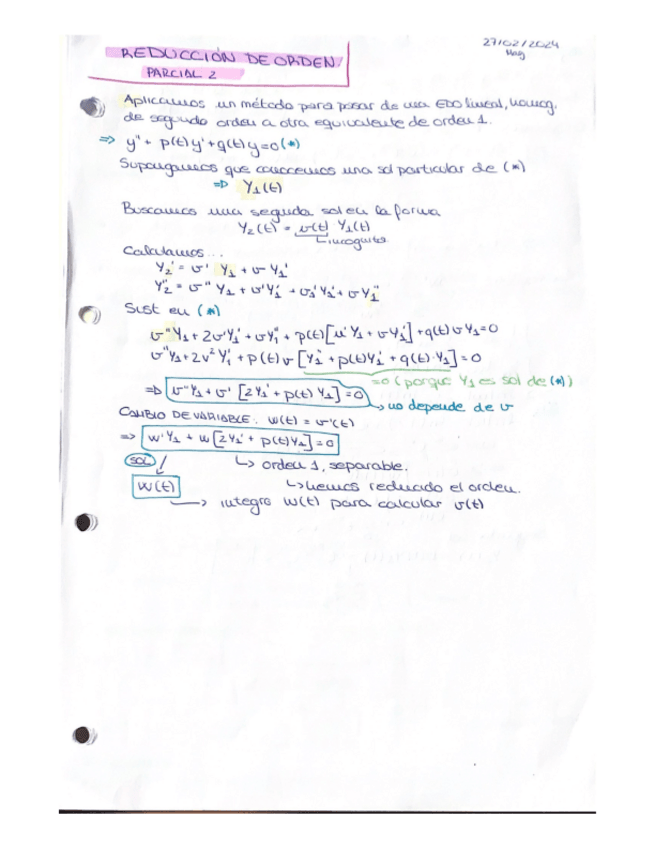 27/02/2024
REDUCCIÓN DE ORDEN
PARCIAL 2
Aplicamos un método para pasar de una EDO lineal, homog.
de segundo orden a otra equivalente de orden 1.
⇒ y'' + p(t)y' + q(t)y = 0 (*)
Supongamos que conocemos una sol particular de (*)
⇒ Y₁(t)
Buscamos una segunda sol en la forma
Y₂(t) = v(t) Y₁(t)
incognita
Calculamos...
Y₂' = v' Y₁ + v Y₁'
Y₂'' = v'' Y₁ + v'Y₁' + v₁'Y₁' + v Y₁''
Sist en (*)
v''Y₁ + 2v'Y₁' + vY₁'' + p(t)[u'Y₁ + vY₁'] + q(t)vY₁ = 0
v''Y₁ + 2v²Y₁' + p(t)v[Y₁'' + p(t)Y₁' + q(t)·Y₁] = 0
=0 (porque Y₁ es sol de (*))
⇒ v''Y₁ + v'[2Y₁' + p(t)Y₁] = 0
↳ no depende de v
CAMBIO DE VARIABLE: w(t) = v'(t)
⇒ w'Y₁ + w[2Y₁' + p(t)Y₁] = 0
SOL
↳ orden 1, separable.
w(t)
↳ hemos reducido el orden.
→ integro w(t) para calcular v(t)